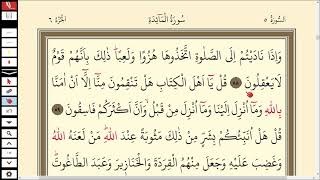 السُّورَة ٥ سُورَةُ الْمَائِدَة الجُزْء ٦
وَإِذَا نَادَيْتُمْ إِلَى الصَّلَوٰةِ اتَّخَذُوهَا هُزُوًا وَلَعِبًا ۚ ذَٰلِكَ بِأَنَّهُمْ قَوْمٌ
لَّا يَعْقِلُونَ ٥٨ قُلْ يَا أَهْلَ الْكِتَابِ هَلْ تَنقِمُونَ مِنَّا إِلَّا أَنْ آمَنَّا
بِاللَّهِ وَمَا أُنزِلَ إِلَيْنَا وَمَا أُنزِلَ مِن قَبْلُ وَأَنَّ أَكْثَرَكُمْ فَاسِقُونَ ٥٩
قُلْ هَلْ أُنَبِّئُكُم بِشَرٍّ مِّن ذَٰلِكَ مَثُوبَةً عِندَ اللَّهِ ۚ مَن لَّعَنَهُ اللَّهُ
وَغَضِبَ عَلَيْهِ وَجَعَلَ مِنْهُمُ الْقِرَدَةَ وَالْخَنَازِيرَ وَعَبَدَ الطَّاغُوتَ ۚ